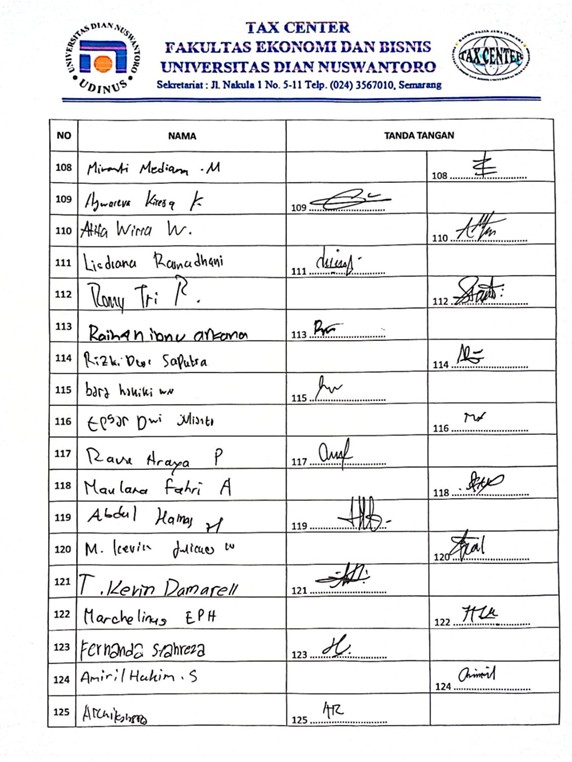 TAX CENTER
FAKULTAS EKONOMI DAN BISNIS
UNIVERSITAS DIAN NUSWANTORO
Sekretariat : Jl. Nakula 1 No. 5-11 Telp. (024) 3567010, Semarang
UNIVERSITAS DIAN NUSWANTORO
UDINUS
TAX CENTER
NO NAMA TANDA TANGAN
108 Miranti Mediam . M 108
109 K 109
110 Wirra W. 110
111 Lisdiana Ramadhani 111
112 Rony Tri R. 112
113 Raihan ibnu arkana 113
114 Rizki Dwi Saputra 114
115 bara hakiki 115
116 Dwi 116
117 P 117
118 Maulana Fahri A 118
119 Abdul 119
120 M. Kevin 120
121 T. Kevin Damarell 121
122 Marchelinus EPH 122
123 Fernanda Syahreza 123
124 Amiril Hakim . S 124
125 125 AR